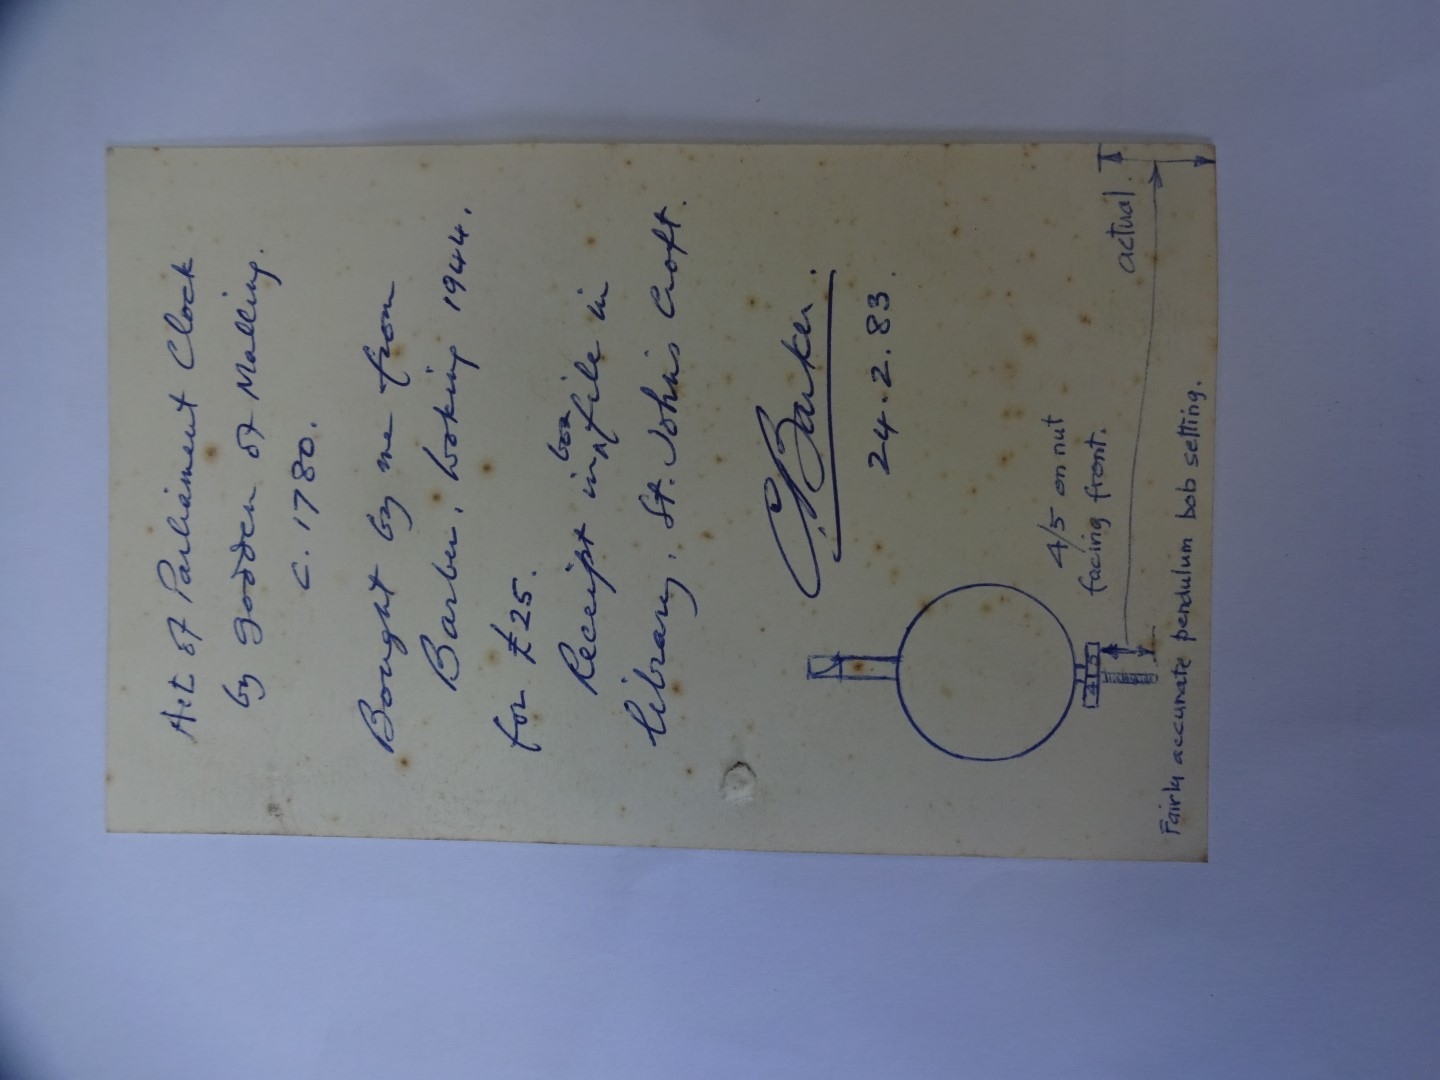 Act of Parliament Clock
by Godden of Malling.
C. 1780.
Bought by me from
Barber, Woking 1944.
for £25.
Receipt in box file in
library, St. Johns Croft.
C Barker.
24.2.83.
4/5 on nut
facing front.
4 5
actual.
Fairly accurate pendulum bob setting.